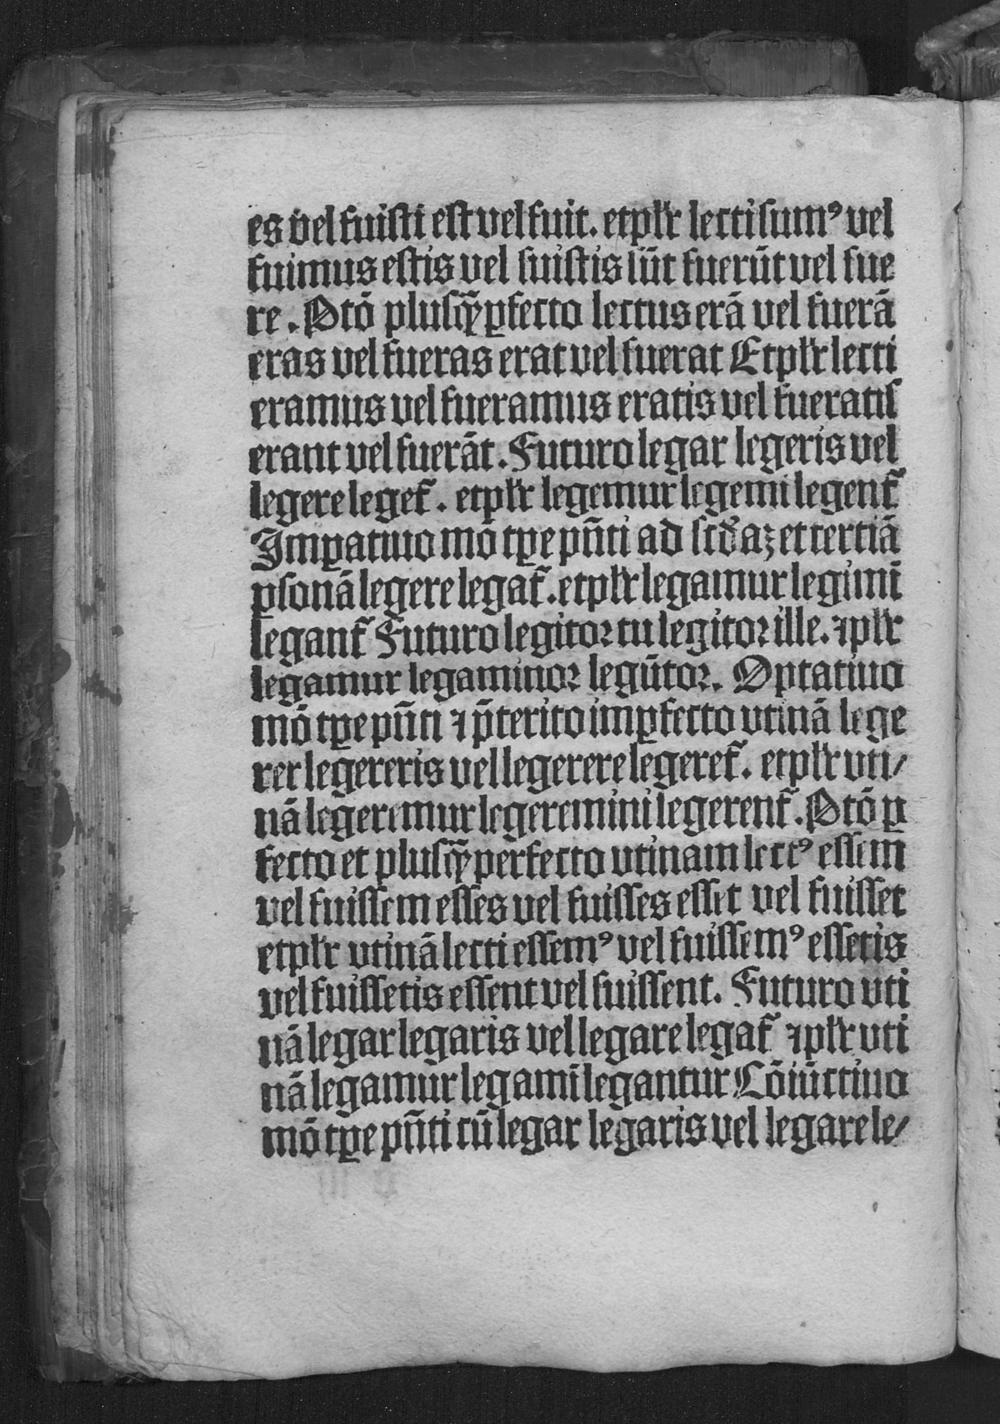 es vel fuisti est vel fuit. et pl̄r lecti sumꝰ vel
fuimus estis vel fuistis sūt fuerūt vel fue
re. Ptō plusq̄ꝑfecto lectus erā vel fuerā
eras vel fueras erat vel fuerat Et pl̄r lecti
eramus vel fueramus eratis vel fueratis
erant vel fuerāt. Futuro legar legeris vel
legere leget̄. et pl̄r legemur legemi legent̄
Imꝑatiuo mo tꝑe pn̄ti ad scd̄aꝫ et tertiā
ꝑsonā legere legat̄. et pl̄r legamur legimī
legant̄ Futuro legitor tu legitor ille. ⁊ pl̄r
legamur legaminor legūtor. Optatiuo
mō tꝑe pn̄ti ⁊ p̄terito imꝑfecto vtinā lege
rer legereris vel legerere legeret̄. et pl̄r vti/
nā legeremur legeremini legerent̄. Ptō ꝑ
fecto et plusq̄ꝑerfecto vtinam lectꝰ essem
vel fuissem esses vel fuisses esset vel fuisset
et pl̄r vtinā lecti essemꝰ vel fuissemꝰ essetis
vel fuissetis essent vel fuissent. Futuro vti
nā legar legaris vel legare legat̄ ⁊ pl̄r vti
nā legamur legamī legantur Cōiūctiuo
mō tꝑe pn̄ti cū legar legaris vel legare le/